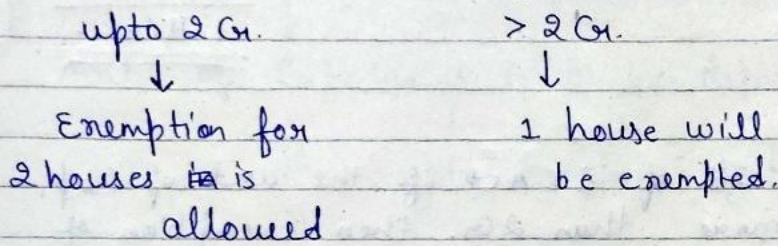 upto 2 Cr.
↓
Exemption for
2 houses is
allowed
> 2 Cr.
↓
1 house will
be exempted.